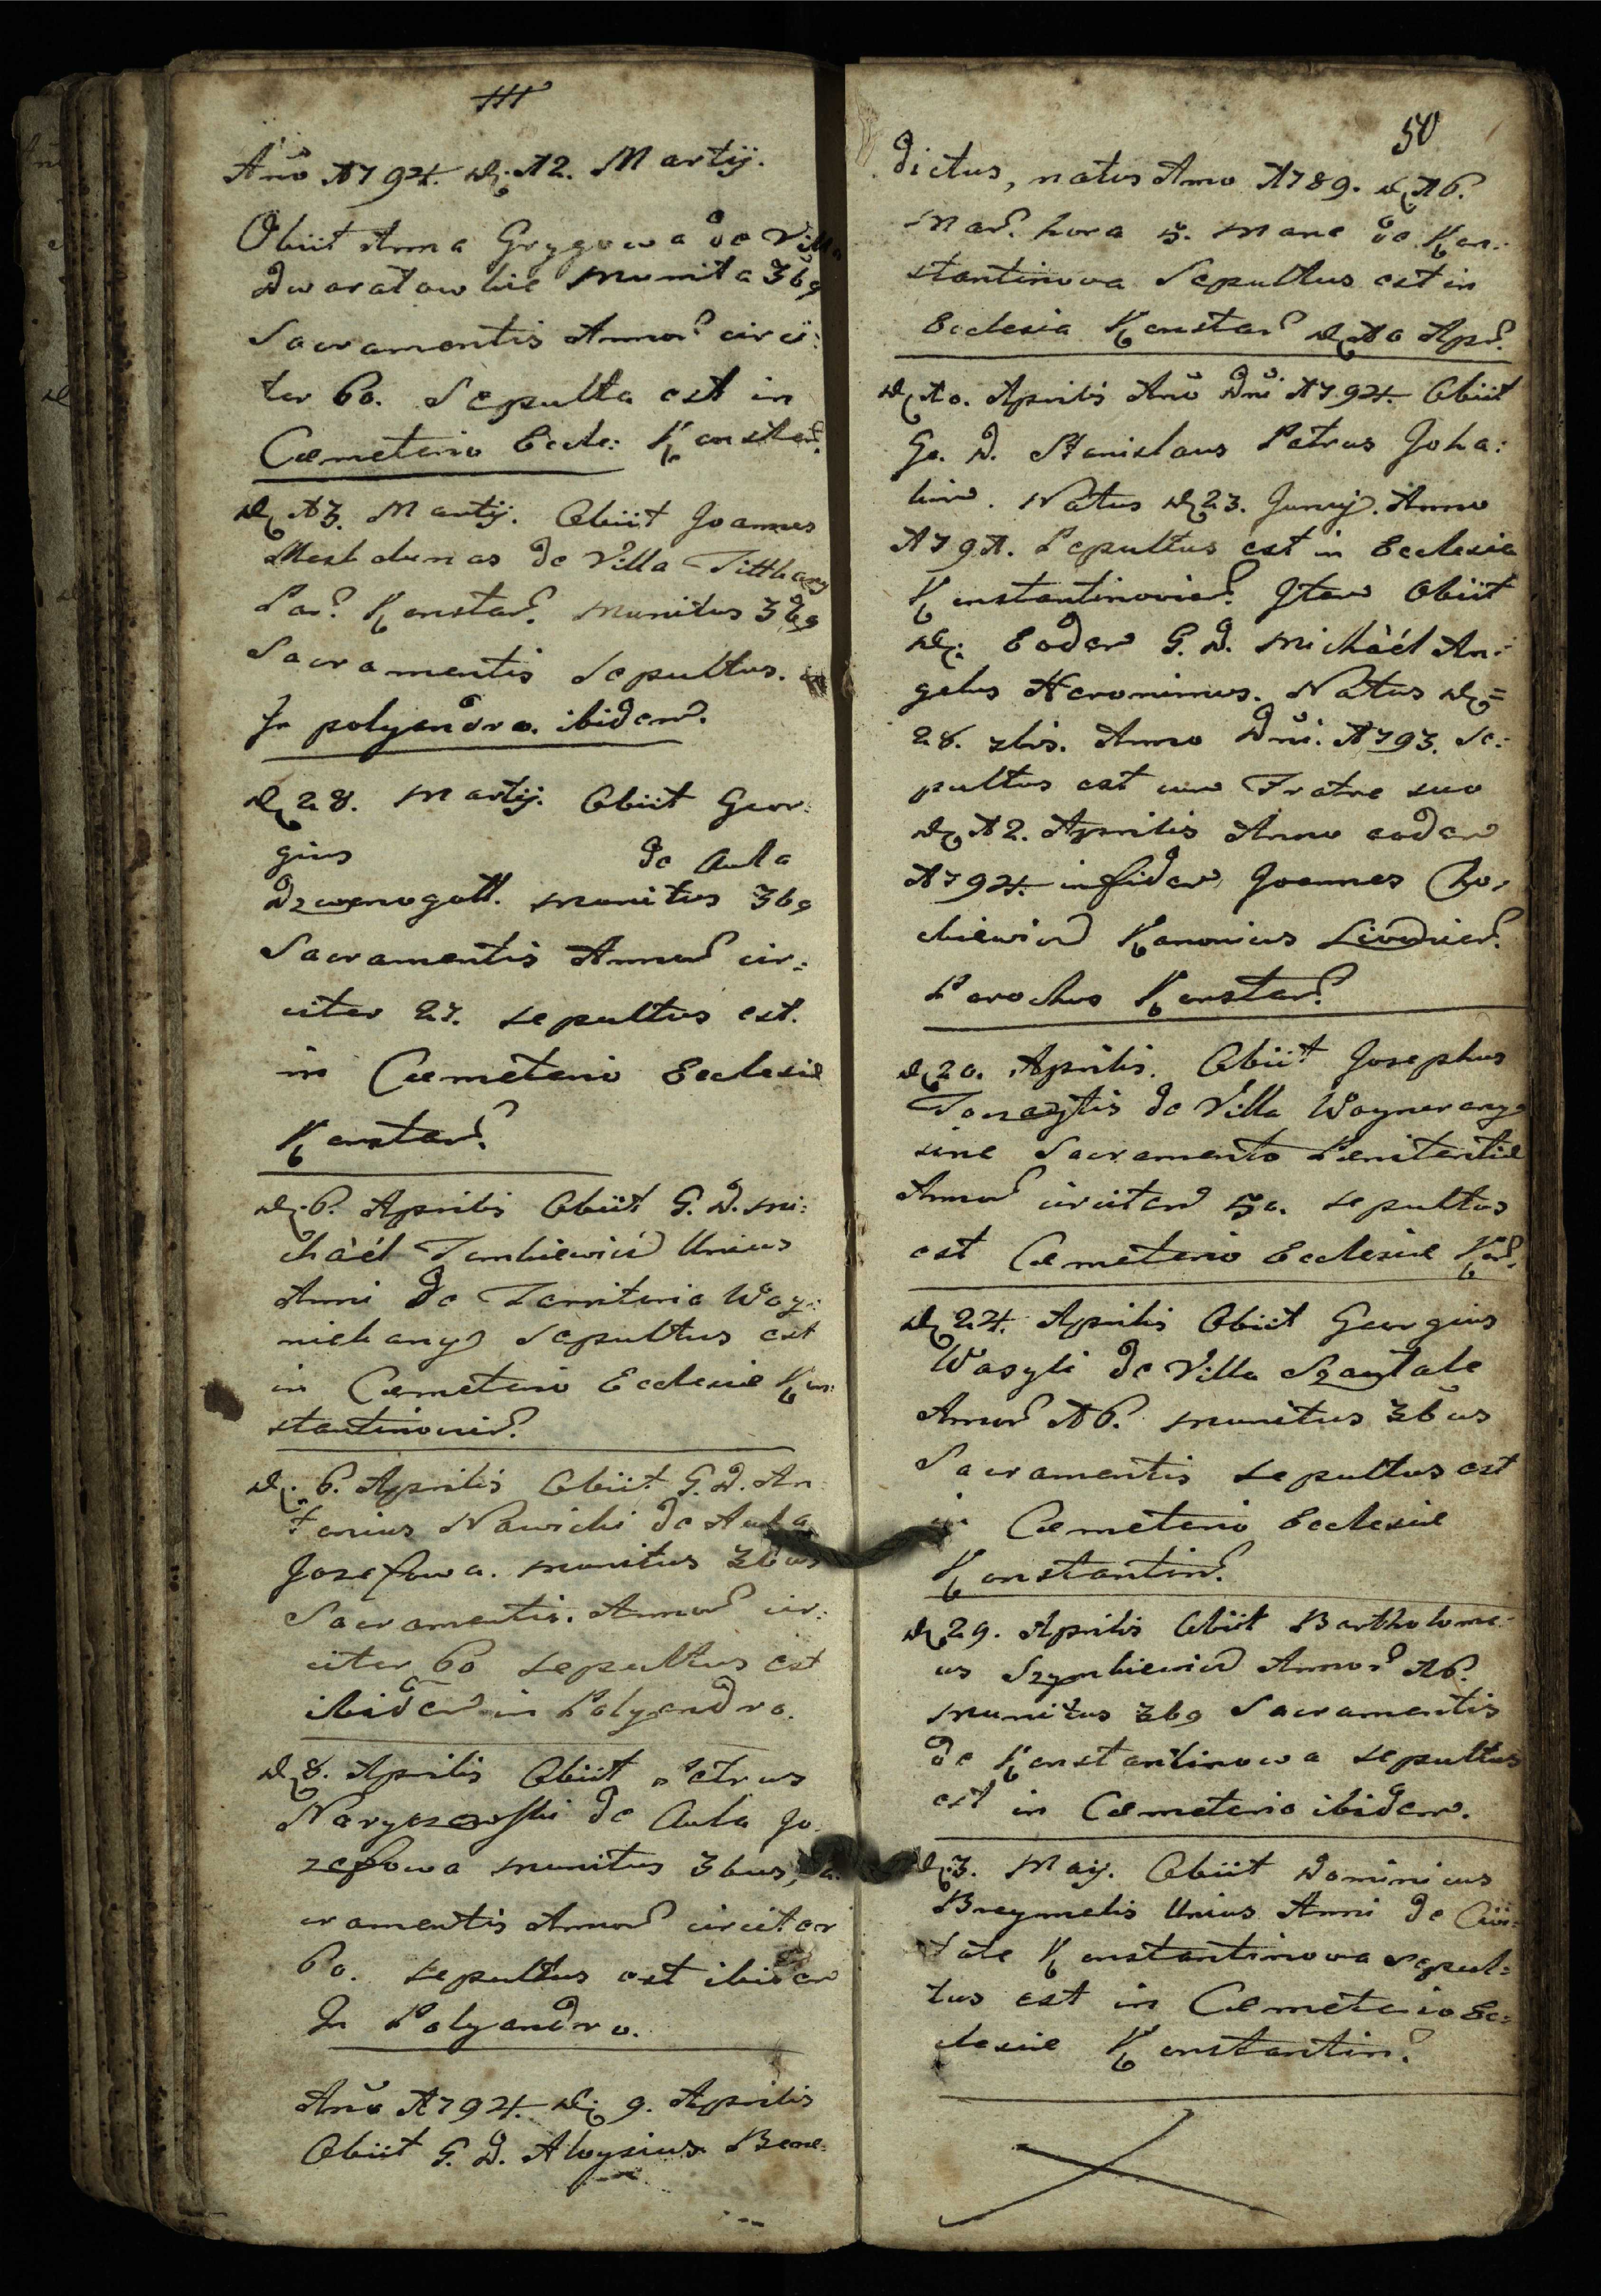 Anõ 1794. D. 12. Martij.
Obiit Anna Grygowa de Villa
Dworatowkie munita 3bg
Sacramentis Annor̃ circi:
ter 60. Sepulta est in
Cæmeterio Eccle: Konstan̄.
D. 13. Martij. Obiit Joannes
de Villa
Par̃. Konstan̄. munitus 3bg
Sacramentis Sepultus.
In polyandro. ibidem.
D. 28. Martij. Obiit Geor:
gius de Aula
munitus 3bg
Sacramentis Annor̃ cir:
citer 27. sepultus est.
in Cæmeterio Ecclesiæ
Konstan̄.
D. 6. Aprilis Obiit G. D. Mi:
chàél Jankiewicz Unius
Anni de Territorio Woy:
niekany sepultus est
in Cæmeterio Ecclesiæ Kon:
stantinovien̄.
D. 6. Aprilis Obiit G. D. An
tonius Nowicki de Aula
Jozefowa. munitus 3bus
Sacramentis. Annor̃ cir:
citer 60 sepultus est
ibidem in Polyandro.
D. 8. Aprilis Obiit Petrus
de Aula Jo
zefowa munitus 3bus, Sa
cramentis Annor̃ circiter
60. sepultus est ibidem
In Polyandro.
Anõ 1794. D. 9. Aprilis
Obiit G. D. Aloysius Bene:
50
dictus, natus Anno 1789. D. 16.
Mar̃. hora 5. mane de Kon:
stantinowa Sepultus est in
Ecclesia Konstan̄ D. 10 Apr̃.
D. 10. Aprilis Anõ Dnĩ 1794. Obiit
G. D. Stanislaus Petrus Joha:
kim. Natus D. 23. Junij. Anno
1791. Sepultus est in Ecclesia
Konstantinovien̄. Item Obiit
D. Eodem G. D. Michàél An:
gelus Heronimus. Natus D. =
28. 7bis. Anno Dnĩ. 1793. Se:
pultus est cum Fratre suo
D. 12. Aprilis Anno eodem
1794. in fidem Joannes
Kanonicus Livonien̄.
Parochus Konstan̄.
D. 20. Aprilis. Obiit Josephus
de Villa
sine Sacramento Penitentiæ
Annor̃ circiter 50. sepultus
est Cæmeterio Ecclesiæ Kon̄.
D. 24. Aprilis Obiit Georgius
Wasyli de Villa
Annor̃ 16. munitus 3bus
Sacramentis sepultus est
in Cæmeterio Ecclesiæ
Konstantin̄.
D. 29. Aprilis Obiit Bartholome:
us Szymkiewicz Annor̃ 16.
munitus 3bg Sacramentis
de Konstantinowa sepultus
est in Cæmeterio ibidem.
D. 3. Maij. Obiit Dominicus
Breymelis Unius Anni de Civi:
tate Konstantinowa sepul:
tus est in Cæmeterio Ec:
clesiæ Konstantin̄.